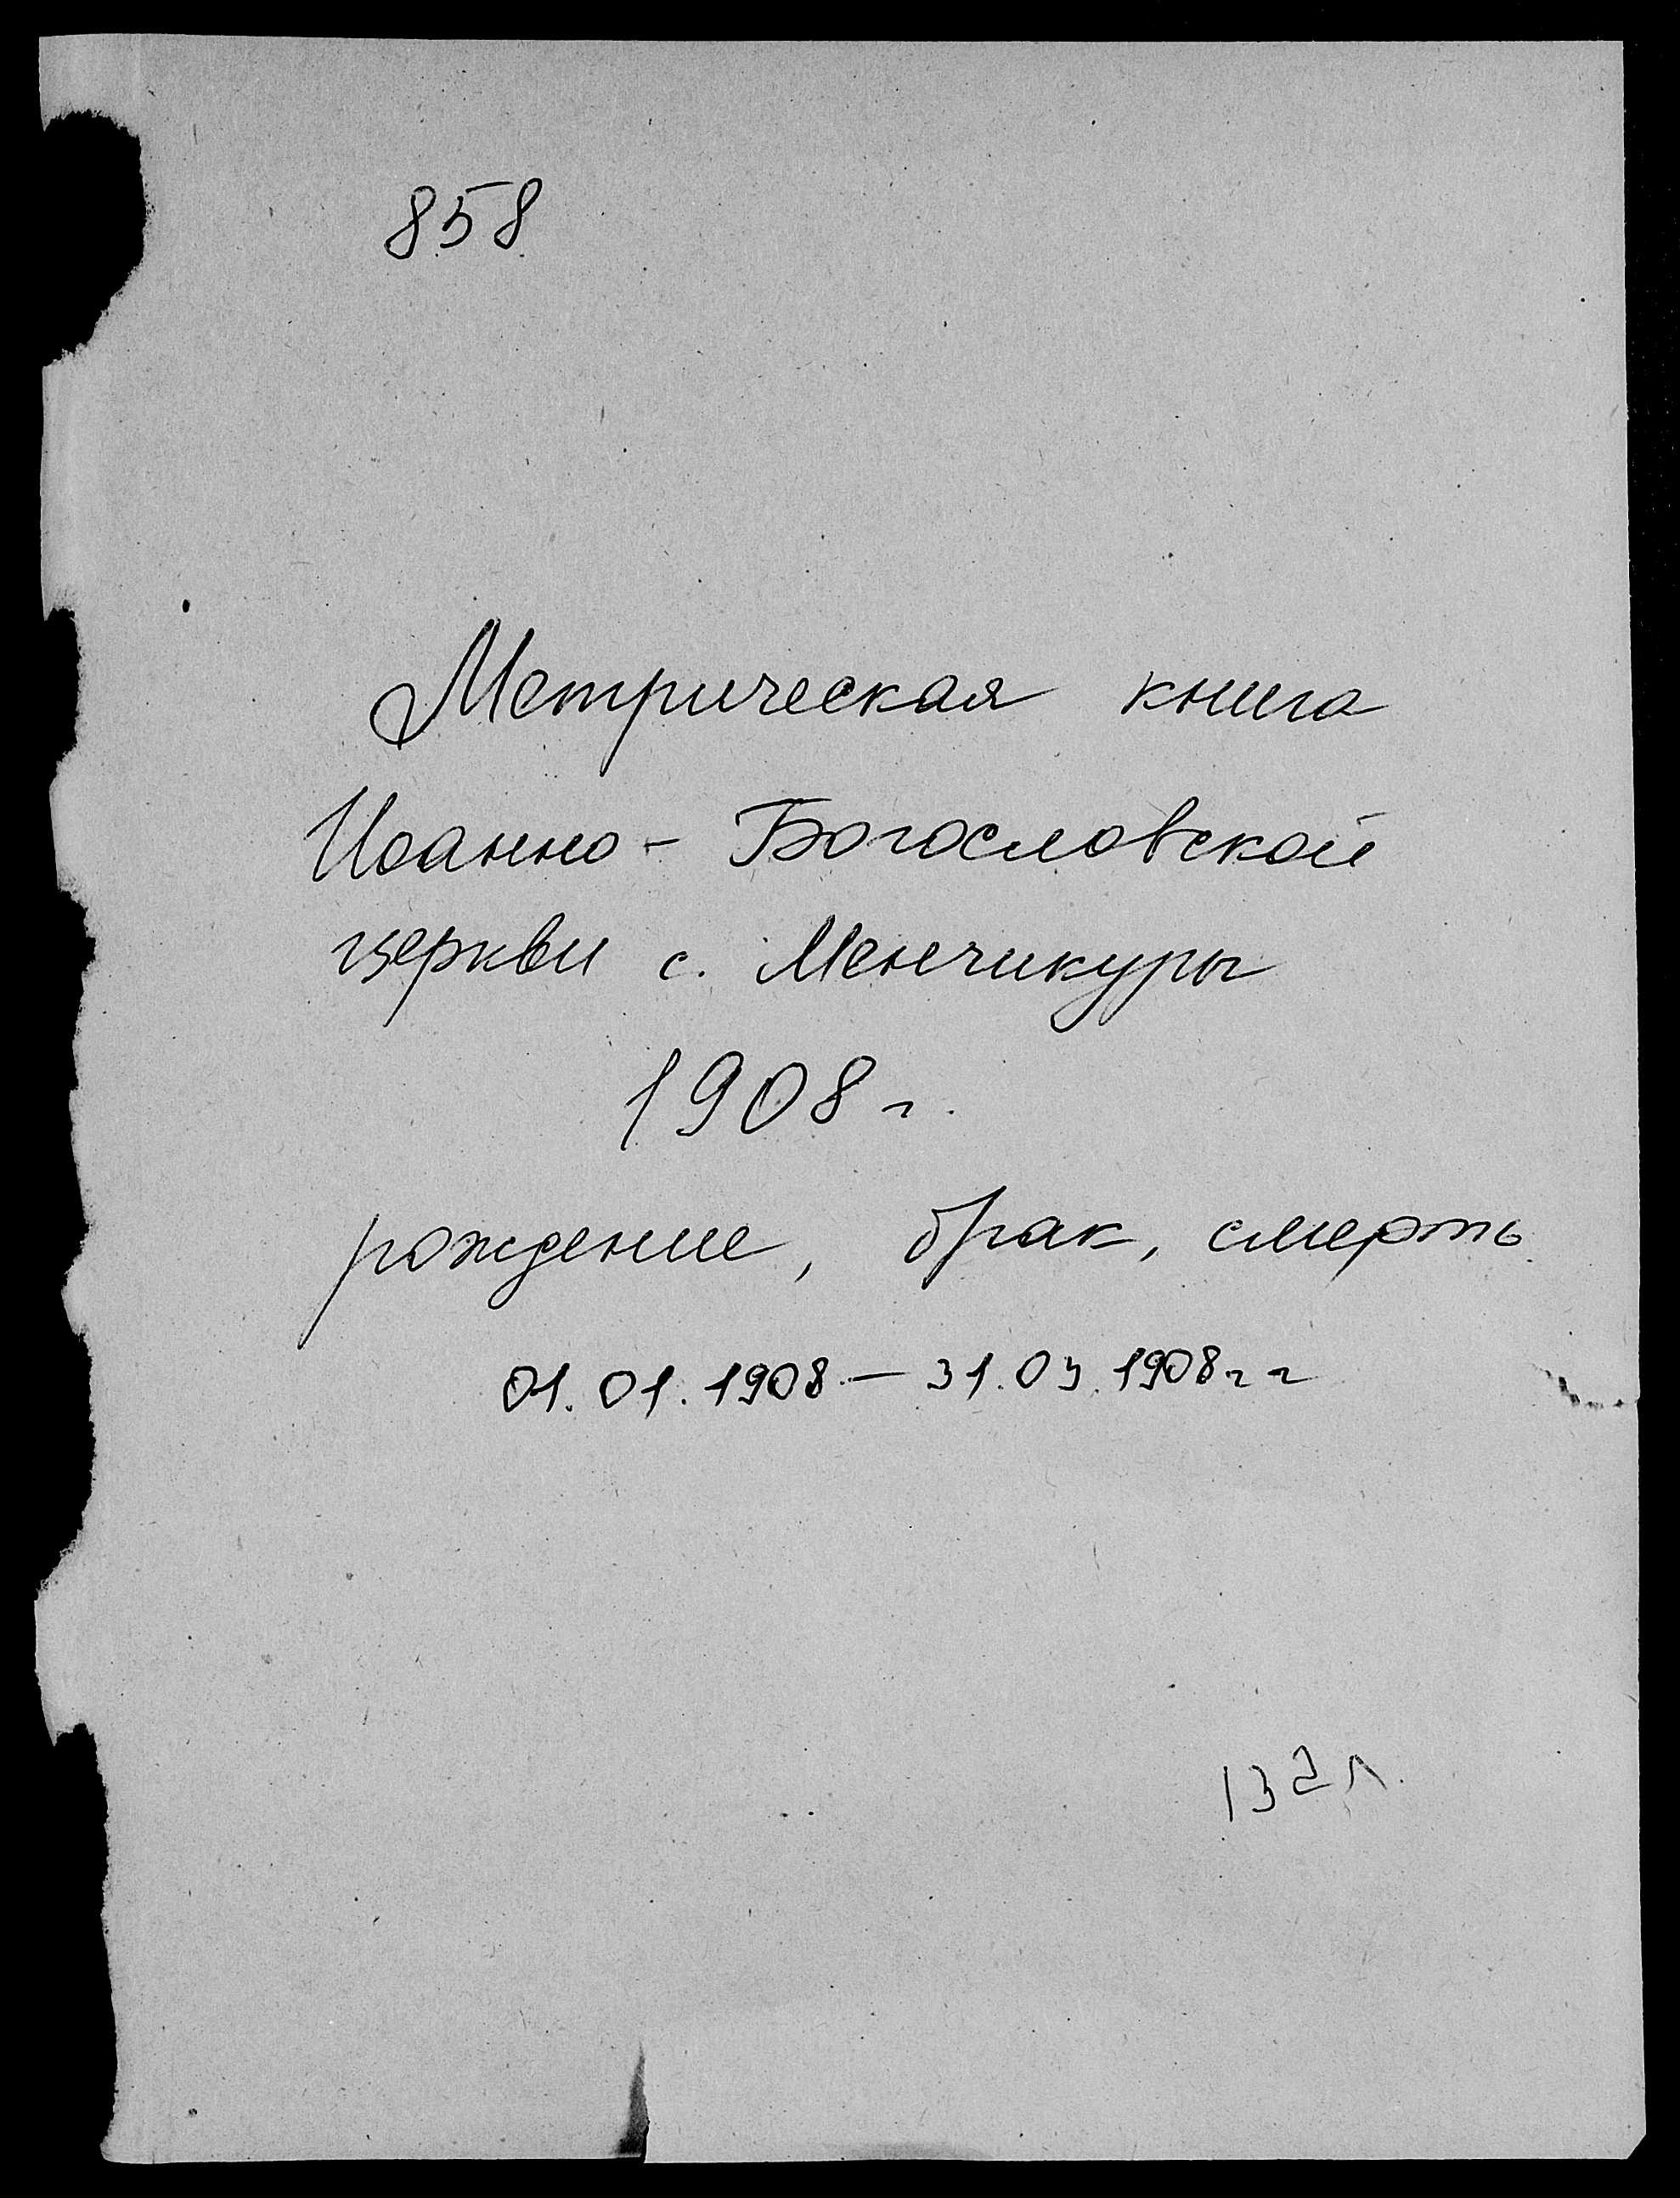 858
Метрическая книга
Иоанно - Богословской
церкви с. Менчикуры
1908 г.
рождение, брак, смерть
01. 01. 1908 – 31. 03. 1908 г г
132 л.